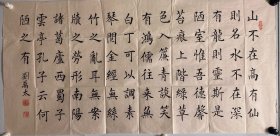 山不在高有仙
則名水不在深
有龍則靈斯是
陋室惟吾德馨
苔痕上階綠草
色入簾青談笑
有鴻儒往來無
白丁可以調素
琴閱金經無絲
竹之亂耳無案
牘之勞形南陽
諸葛廬西蜀子
雲亭孔子云何
陋之有